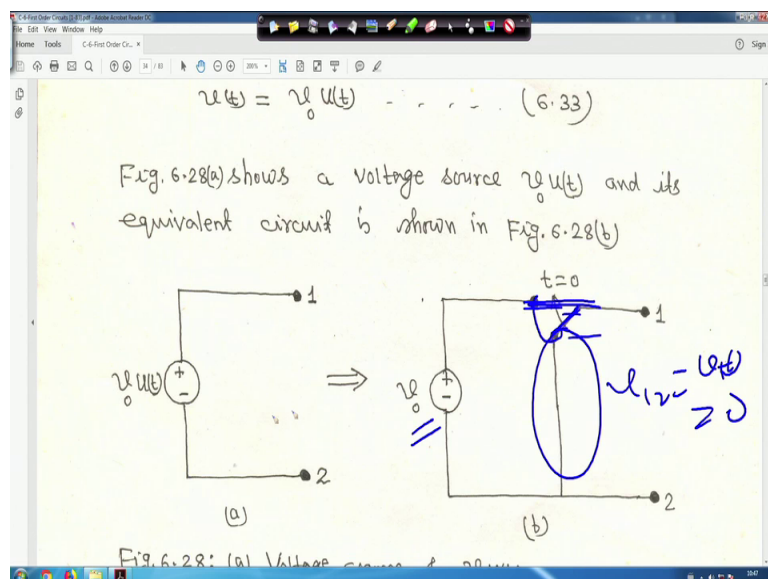 C-6-First Order Circuits [1-83].pdf - Adobe Acrobat Reader DC
File Edit View Window Help
Home Tools C-6-First Order Cir... × Sign
34 / 83 200%
v(t) = v₀ u(t) - . - . - . (6.33)
Fig. 6.28(a) shows a voltage source v₀ u(t) and its
equivalent circuit is shown in Fig. 6.28(b)
t=0
1 1
v₀ u(t) + - ⇒ v₀ + - v₁₂ = v(t)
= 0
2 2
(a) (b)
Fig. 6.28: (a) Voltage source
10:47